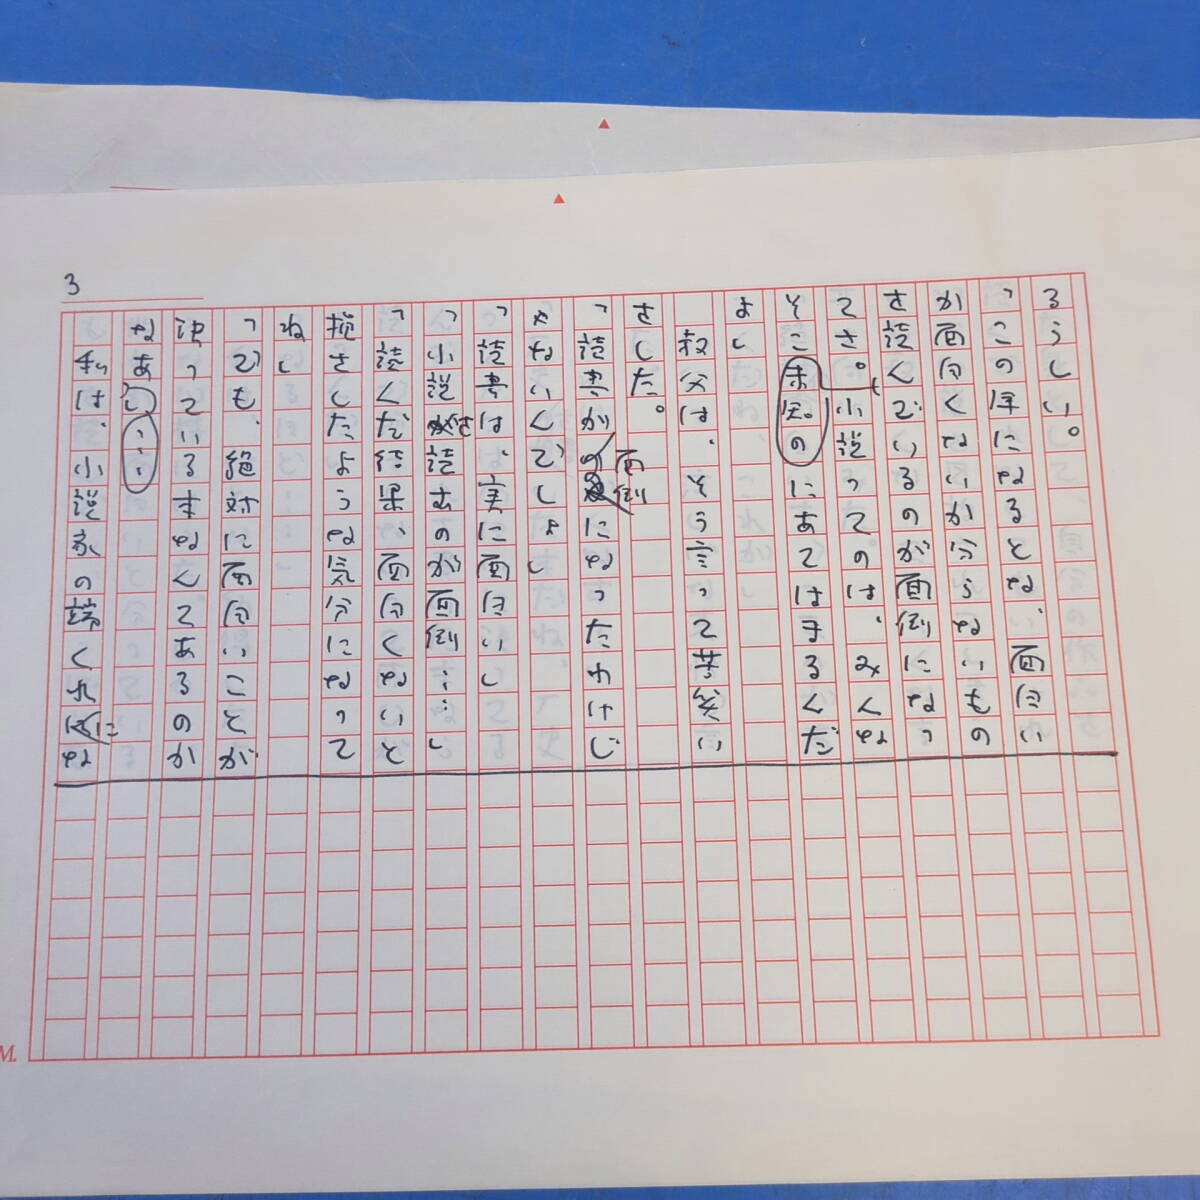 3
るらしい。
「この年になるとな、面白い
か面白くないか分らないもの
を読んでいるのが面倒になっ
てさ。小説ってのは、みんな
そこ
にあてはまるんだ
よ」
叔父は、そう言って苦笑い
をした。
「読書が面倒になったわけじ
ゃないんでしょ」
「読書は、実に面白いし」
「小説を読むのが面倒……」
「読んだ結果、面白くないと
損をしたような気分になって
ね」
「でも、絶対に面白いことが
決っている本なんてあるのか
なあ」……
私は、小説家の端くれにな
M.